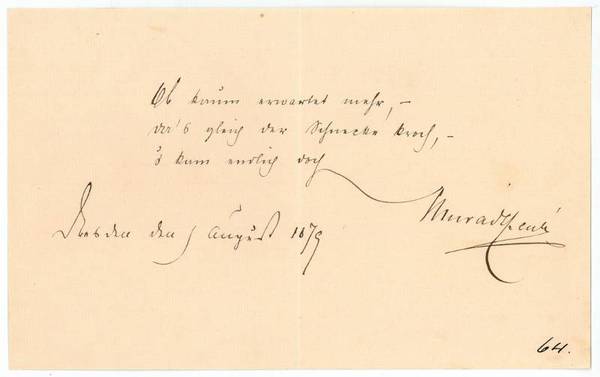 Ob kaum erwartet mehr, –
da's gleich der Schnecke kroch, –
's kam endlich doch
Dresden den August 1879
Murad Efendi
64.